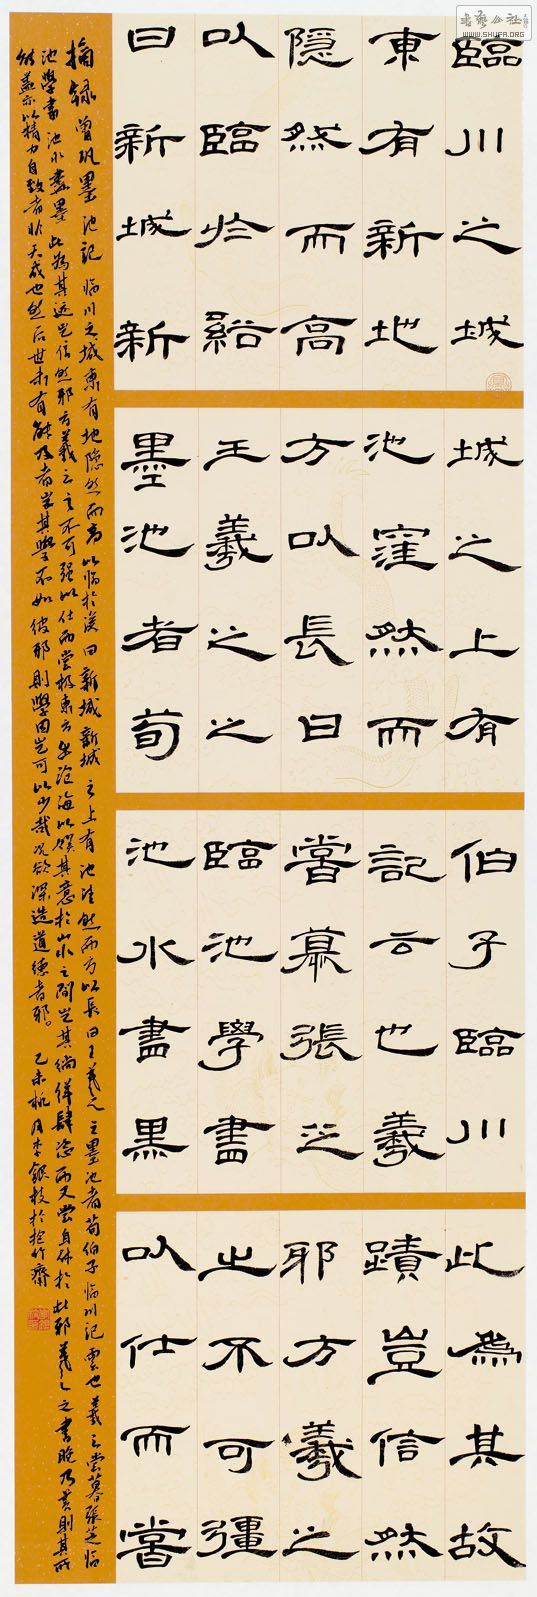 臨川之城
東有新地
隱然而高
以臨於谿
曰新城新
城之上有
池窪然而
方以長曰
王羲之之
墨池者荀
伯子臨川
記云也羲
嘗慕張芝
臨池學書
池水盡黑
此為其故
蹟豈信然
邪方羲之
之不可彊
以仕而嘗
摘録曾巩墨池記 臨川之城東有地隐然而高以临於溪曰新城新城之上有池洼然而方以長曰王羲之之墨池者荀伯子临川記雲也羲之嘗慕張芝临
池學書池水盡墨此為其迹岂信然邪方羲之之不可强以仕而尝极東方出滄海以娱其意於山水之間豈其徜徉肆恣而又尝自休於此邪羲之之書晚乃善則其所
能蓋亦以精力自致者非天成也然后世未有能及者豈其學不如彼邪則學固岂可以少哉况欲深造道德者邪。乙未桃月李銀枝於拾竹齋
書藝公社
WWW.SHUFA.ORG